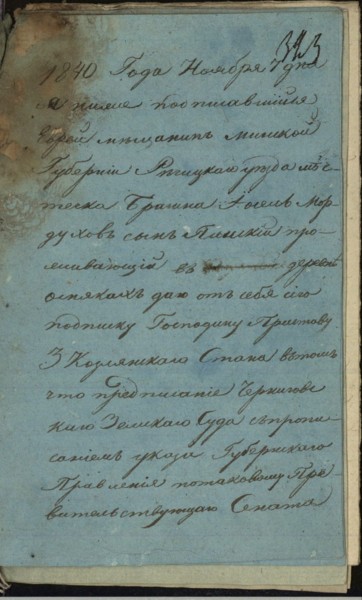 343
1840 Года Ноября 7 дня
я ниже подписавшійся
Еврей мѣщанинъ Минской
Губерніи Рѣчицкаго уѣзда мѣс
течка Брагина Іосель Мор
духовъ сынъ Пинскій про
живающій въ деревнѣ
даю отъ себя сію
подписку Господину Приставу
3 Козлянскаго Стана въ томъ
что предписаніе Чернигов
скаго Земскаго Суда съ пропи
саніемъ указа Губернскаго
Правленія по таковому Пра
вительствующаго Сената